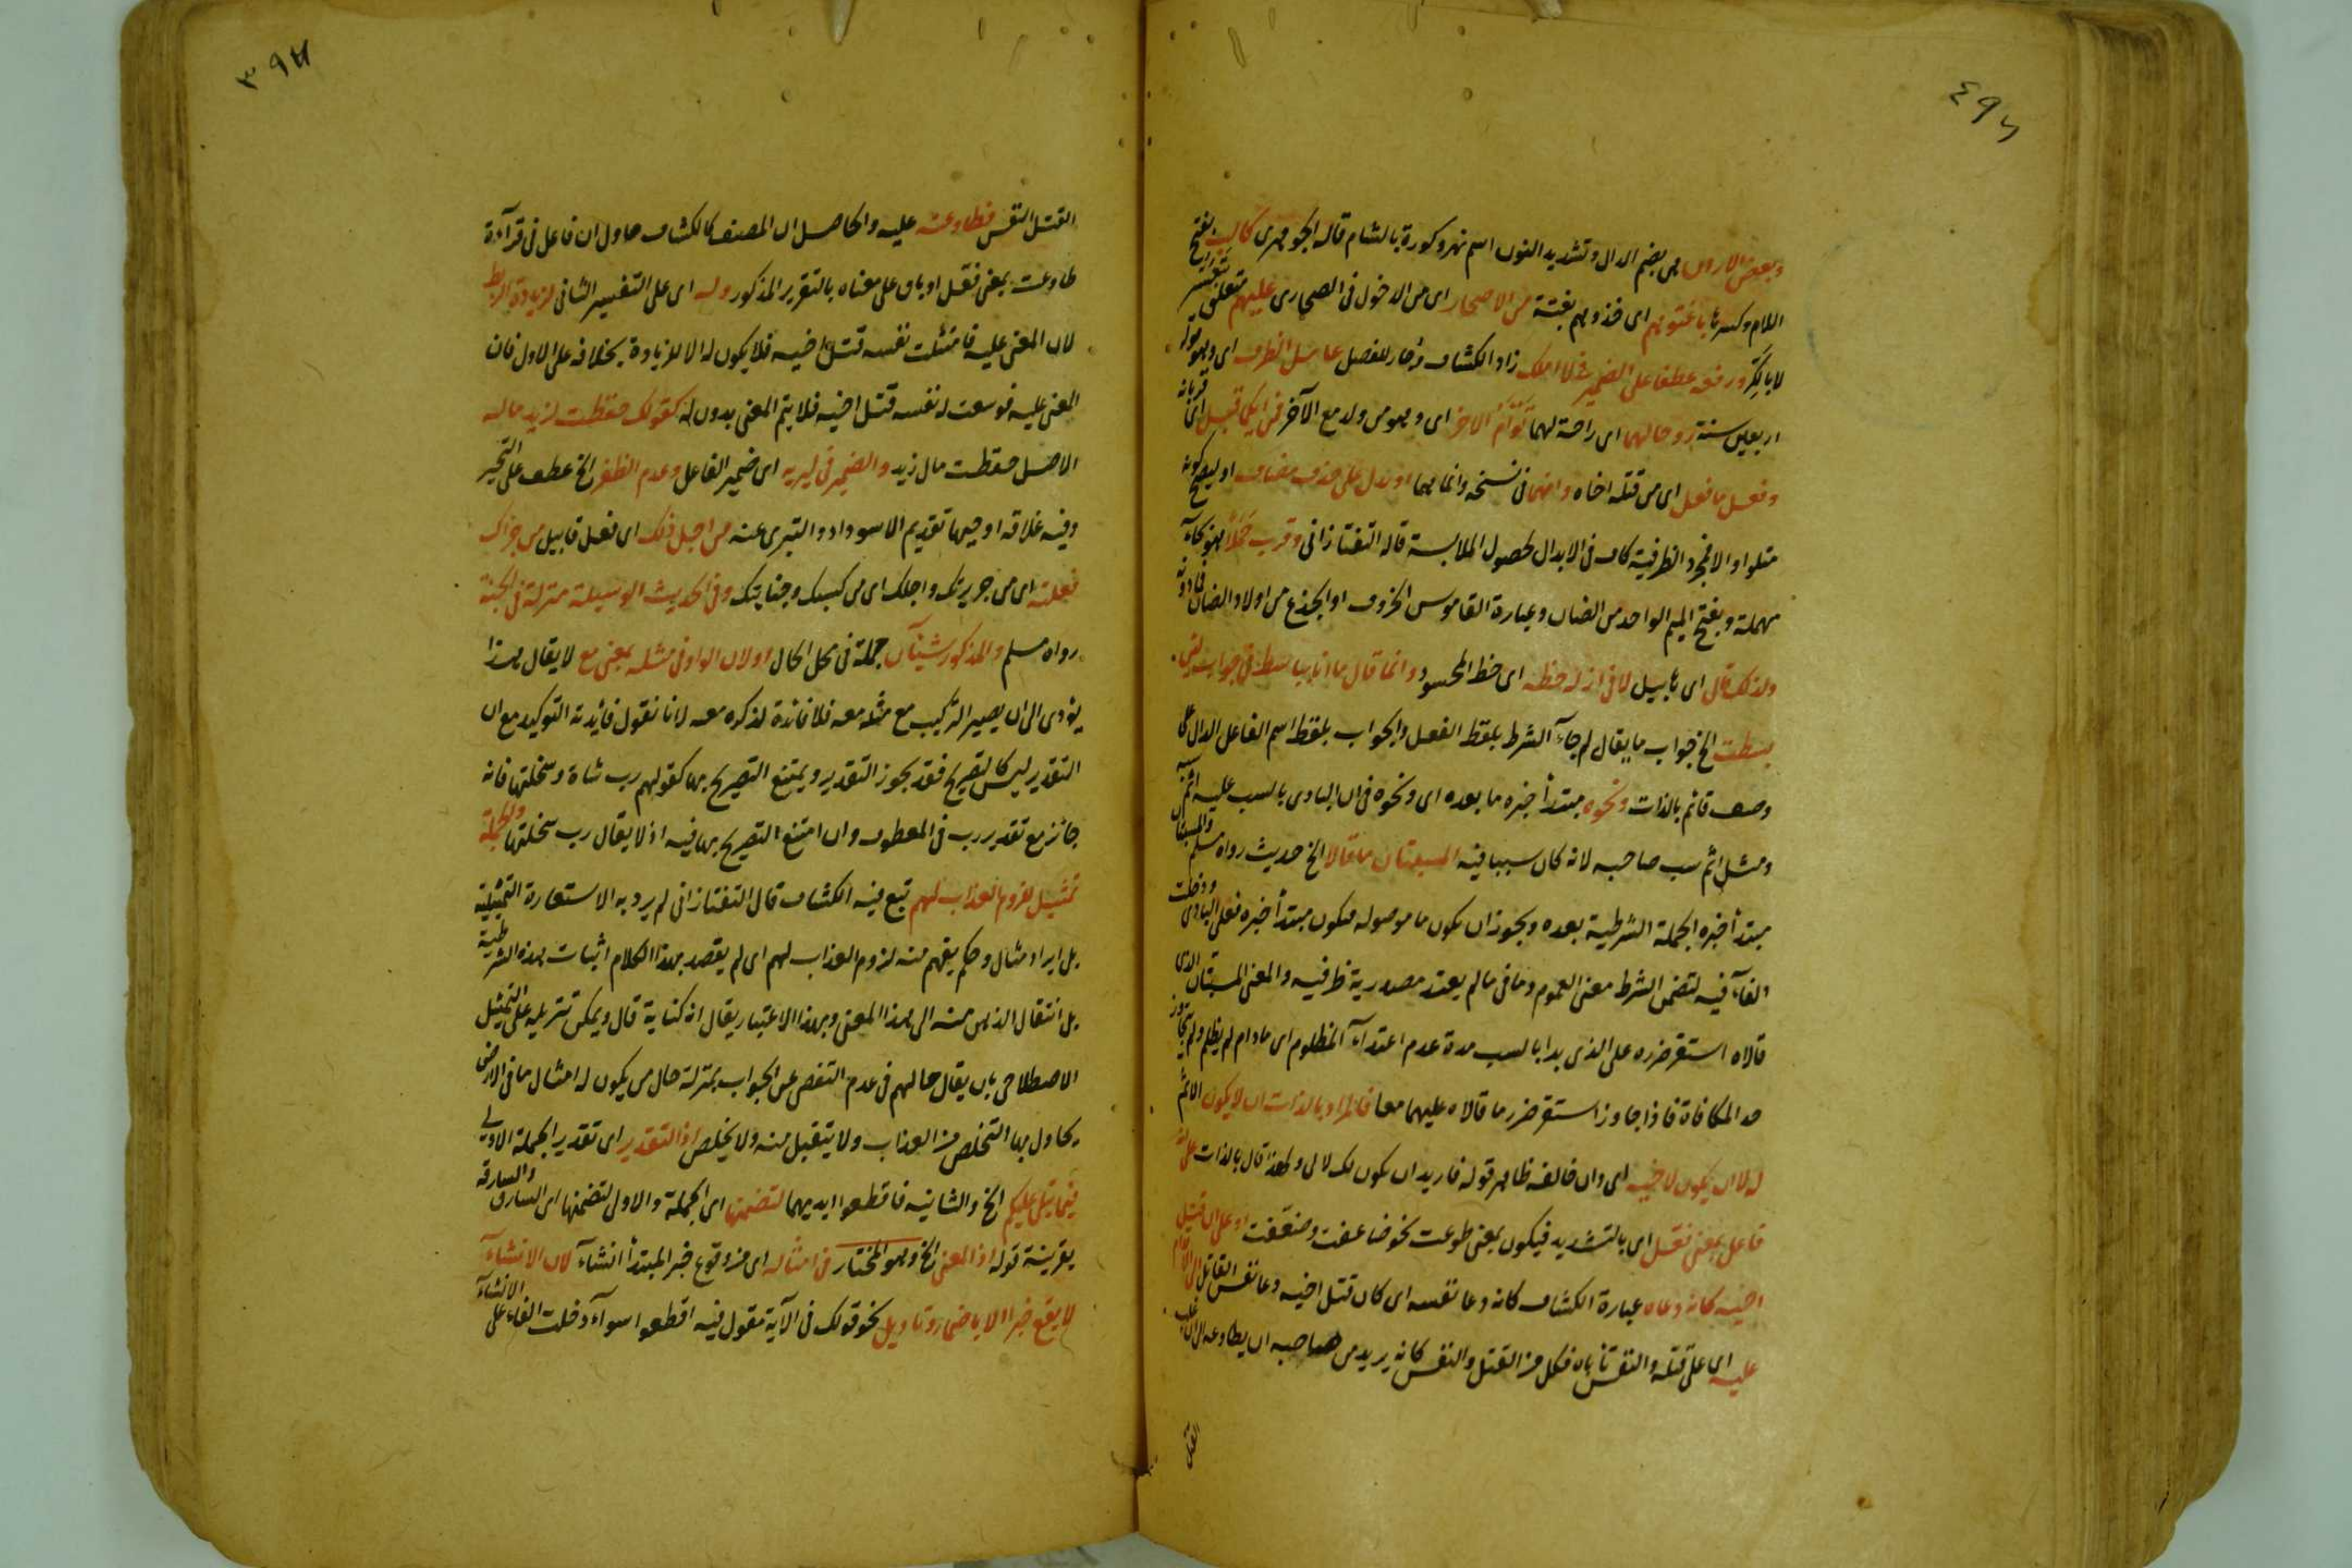 ٤٩٦
وبعض الاردن هي بضم الدال وتشديد النون اسم نهر وكورة بالشام قاله الجوهري كالب بفتح
اللام وكسرها باغتوهم اي خذوهم بغتة من الاصحار اي من الدخول في الصحارى عليهم متعلق
ورفعه عطفا على الضمير في لا املك زاد الكشاف وجاز للفصل عامل الظرف اي وهو
اربعين سنة روحا لهما اي راحة لهما توأم الاخر اي وهو من ولد مع الآخر فمن ايكما قبل اي قربانه
وفعل ما فعل اي من قتله اخاه وانهما في نسخة وانما هما او بدل على حذف مضاف او ليصح كونه
متلوا والا فمجرد الظرفية كاف في الابدال لحصول الملابسة قاله التفتازاني وقرب حملا هو بحاء
مهملة وبفتح الميم الواحد من الضان وعبارة القاموس الخروف او الجذع من اولاد الضان فما دونه
ولذلك قال اي هابيل لا في ازالة حظه اي حظ المحسود وانما قال ما انا بباسط في جواب لئن
بسطت الخ جواب ما يقال لم جاء الشرط بلفظ الفعل والجواب بلفظ اسم الفاعل الدال على
وصف قائم بالذات ونحوه مبتدأ خبره ما بعده اي ونحوه في ان البادي بالسب عليه اثم سبه
ومثل اثم سب صاحبه لانه كان سببا فيه المستبان ما قالا الخ حديث رواه مسلم والمستبان
مبتدأ خبره الجملة الشرطية بعده ويجوز ان يكون ما موصولة فيكون مبتدأ خبره فعلى البادي ودخلت
الفاء فيه لتضمن الشرط معنى العموم وما في ما لم يعتد مصدرية ظرفية والمعنى المستبان الذي
قالاه استقر ضرره على الذي بدا بالسب مدة عدم اعتداء المظلوم اي ما دام لم يظلم ولم يتجاوز
حد المكافاة فاذا جاوز استقر ضرر ما قالاه عليهما معا فالمراد بالذات ان لا يكون الاثم
له لا ان يكون لاخيه اي وان خالف ظاهر قوله فاريد ان يكون لك لا لي ولهذا قال بالذات على انه
فاعل بمعنى فعل اي بالتشديد فيكون بمعنى طوعت نحو ضاعفت وضعفت او على ان قتل
اخيه كانه دعاه عبارة الكشاف كانه دعا نفسه اي كان قتل اخيه دعا نفس القاتل الى الاقدام
عليه اي على قتله والنفس تأباه فكل من القتل والنفس كانه يريد من صاحبه ان يطاوعه الى ان غلب
القتل
٣٩٧
القتل النفس فطاوعته عليه والحاصل ان المصنف كالكشاف حاول ان فاعل في قراءة
طاوعت بمعنى فعل او باق على معناه بالتقرير المذكور وله اي على التفسير الثاني لزيادة الربط
لان المعنى عليه فامتثلت نفسه قتل اخيه فلا يكون له الا للزيادة بخلافه على الاول فان
المعنى عليه فوسعت له نفسه قتل اخيه فلا يتم المعنى بدون له كقولك حفظت لزيد ماله
الاصل حفظت مال زيد والضمير في ليريه اي ضمير الفاعل وعدم الظفر الخ عطف على التحير
وفيه علاقة او حيها تقديم الاسوداد والتبري عنه من اجل ذلك اي فعل قابيل من جراك
فعلته اي من جريرتك واجلك اي من كسبك وجنايتك وفي الحديث الوسيلة منزلة في الجنة
رواه مسلم والمذكور شيئان جملة في محل الحال او لان الواو في مثله بمعنى مع لا يقال هذا
يؤدي الى ان يصير التركيب مع مثله معه فلا فائدة لذكره معه لانا نقول فائدته التوكيد مع ان
التقدير ليس كالتصريح فقد يجوز التقدير ويمتنع التصريح بها كقولهم رب شاة وسخلتها فانه
جائز مع تقدير رب في المعطوف وان امتنع التصريح بها فيه اذ لا يقال رب سخلتها والجملة
تمثيل للزوم العذاب لهم تبع فيه الكشاف قال التفتازاني لم يرد به الاستعارة التمثيلية
بل ايراد مثال وحكم يفهم منه لزوم العذاب لهم اي لم يقصد بهذا الكلام اثبات هذه الشرطية
بل انتقال الذهن منه الى هذا المعنى وبهذا الاعتبار يقال انه كناية قال ويمكن تنزيله على التمثيل
الاصطلاحي بان يقال حالهم في عدم التفصي عن الجواب بمنزلة حال من يكون له امثال ما في الارض
يحاول بها التخلص من العذاب ولا يتقبل منه ولا يخلص اذ التقدير اي تقدير الجملة الاولى
فيما يتلى عليكم الخ والثانية فاقطعوا ايديهما لتضمنها اي الجملة والاولى لتضمنهما اي السارق والسارقة
بقرينة قوله اذ المعنى الخ وهو المختار في امثاله اي من وقوع خبر المبتدأ انشاء لان الانشاء
لا يقع خبرا الا باضمار وتأويل نحو قولك في الآية مقول فيه اقطعوا سواء دخلت الفاء على الانشاء